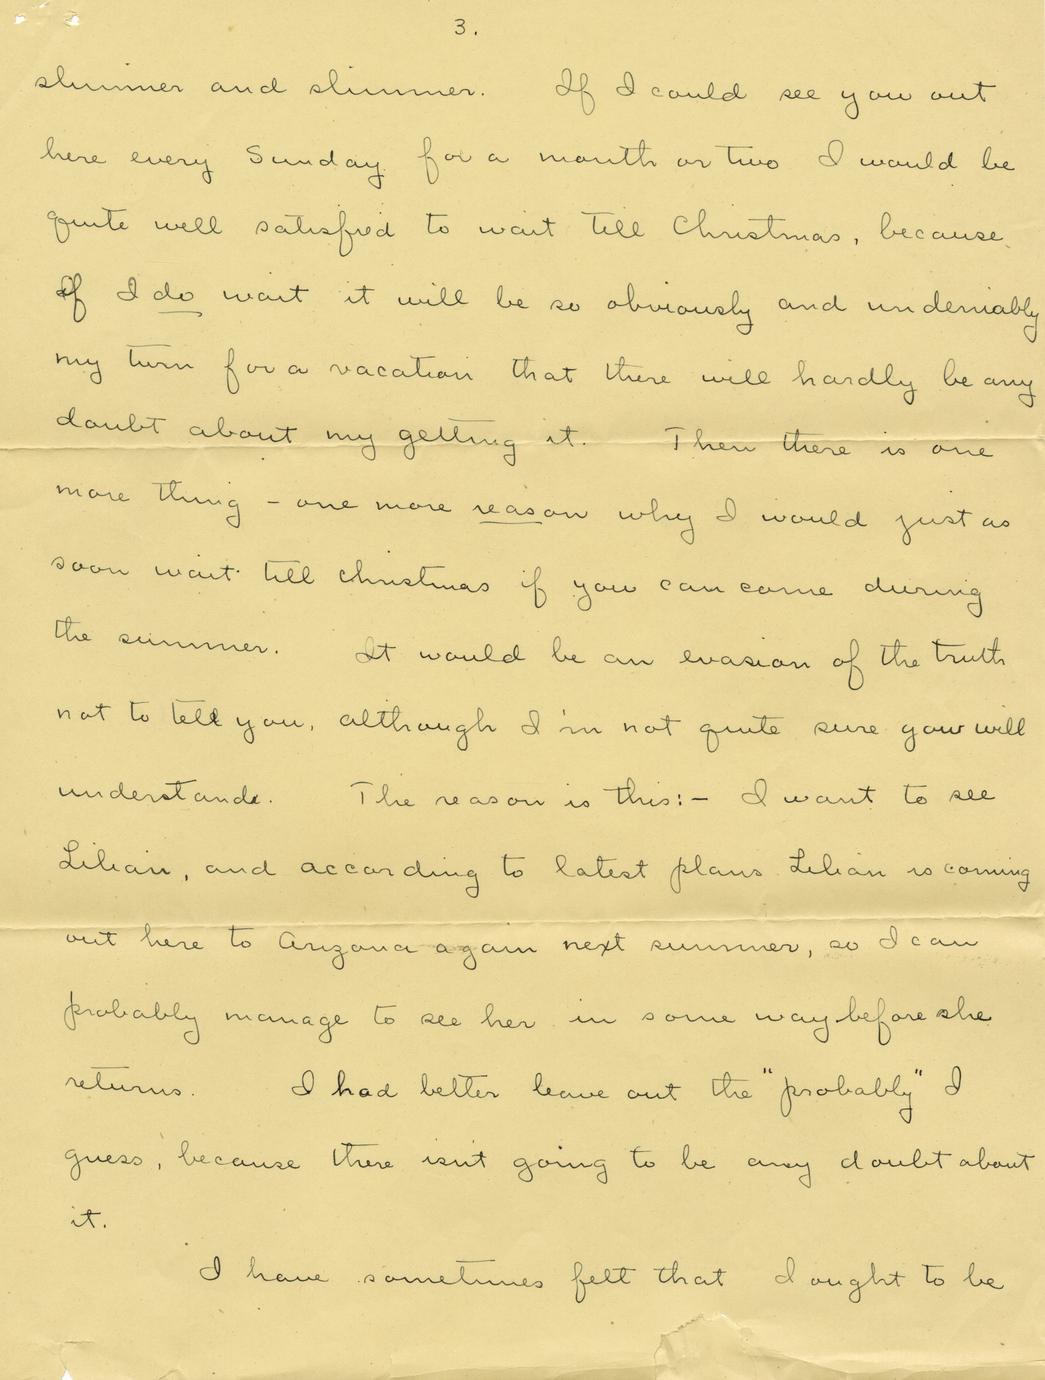 3.
slimmer and slimmer. If I could see you out
here every Sunday for a month or two I would be
quite well satisfied to wait till Christmas, because
if I do wait it will be so obviously and undeniably
my turn for a vacation that there will hardly be any
doubt about my getting it. Then there is one
more thing - one more reason why I would just as
soon wait till Christmas if you can come during
the summer. It would be an evasion of the truth
not to tell you, although I'm not quite sure you will
understand. The reason is this:- I want to see
Lilian, and according to latest plans Lilian is coming
out here to Arizona again next summer, so I can
probably manage to see her in some way before she
returns. I had better leave out the "probably" I
guess, because there isn't going to be any doubt about
it.
I have sometimes felt that I ought to be